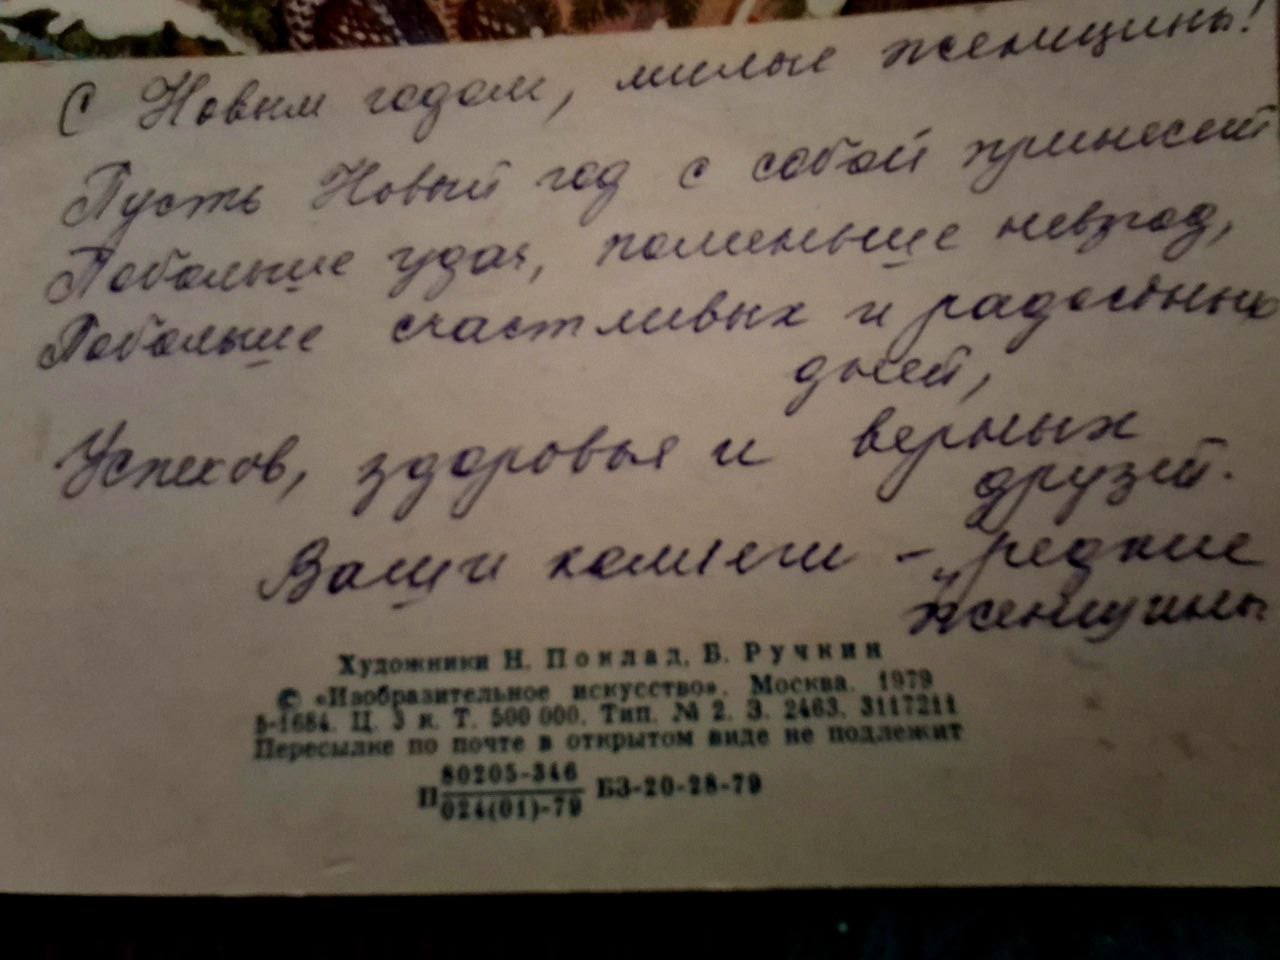 С Новым годом, милые женщины!
Пусть Новый год с собой принесет
Побольше удач, поменьше невзгод,
Побольше счастливых и радостных
дней,
Успехов, здоровья и верных
друзей.
Ваши коллеги - редкие
женщины
Художники Н. Поклад, Б. Ручкин
© «Изобразительное искусство». Москва. 1979
5-1684. Ц. 3 к. Т. 500 000. Тип. № 2. З. 2463. 3117211
Пересылке по почте в открытом виде не подлежит
П 80205-346
024(01)-79 БЗ-20-28-79